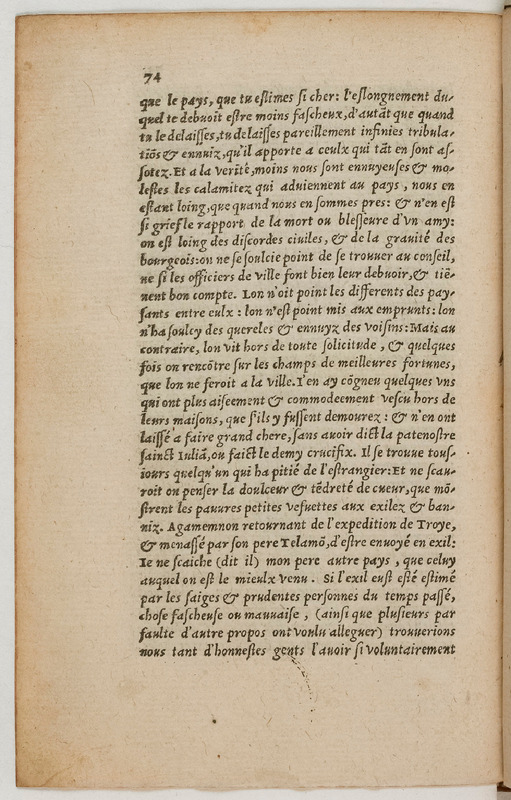 74
que le pays, que tu estimes si cher: l'eslongnement du-
quel te debuoit estre moins fascheux, d'autãt que quand
tu le delaisses, tu delaisses pareillement infinies tribula-
tiõs & ennuiz, qu'il apporte a ceulx qui tãt en sont as-
sotez. Et a la verité, moins nous sont ennuyeuses & mo-
lestes les calamitez qui aduiennent au pays, nous en
estant loing, que quand nous en sommes pres: & n'en est
si grief le rapport de la mort ou blesseure d'vn amy:
on est loing des discordes ciuiles, & de la grauité des
bourgeois: on ne se soulcie point de se trouuer au conseil,
ne si les officiers de ville font bien leur debuoir, & tiẽ-
nent bon compte. Lon n'oit point les differents des pay-
sants entre eulx: lon n'est point mis aux emprunts: lon
n'ha soulcy des quereles & ennuyz des voisins: Mais au
contraire, lon vit hors de toute solicitude, & quelques
fois on rencõtre sur les champs de meilleures fortunes,
que lon ne feroit a la ville. I'en ay cõgneu quelques vns
qui ont plus aiseement & commodeement vescu hors de
leurs maisons, que s'ils y fussent demourez: & n'en ont
laissé a faire grand chere, sans auoir dict la patenostre
sainct Iuliã, ou faict le demy crucifix. Il se trouue tous-
iours quelqu'un qui ha pitié de l'estrangier: Et ne scau-
roit on penser la doulceur & tẽdreté de cueur, que mõ-
strent les pauures petites vefuettes aux exilez & ban-
niz. Agamemnon retournant de l'expedition de Troye,
& menassé par son pere Telamõ, d'estre enuoyé en exil:
Ie ne scaiche (dit il) mon pere autre pays, que celuy
auquel on est le mieulx venu. Si l'exil eust esté estimé
par les saiges & prudentes personnes du temps passé,
chose fascheuse ou mauuaise, (ainsi que plusieurs par
faulte d'autre propos ont voulu alleguer) trouuerions
nous tant d'honnestes gents l'auoir si voluntairement